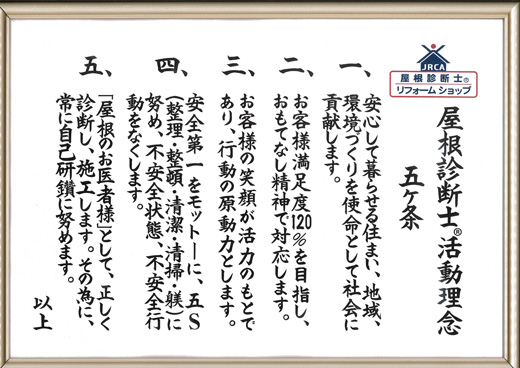 JRCA
屋根診断士®
リフォームショップ
屋根診断士®活動理念
五ケ条
一、安心して暮らせる住まい、地域、
環境づくりを使命として社会に
貢献します。
二、お客様満足度120%を目指し、
おもてなし精神で対応します。
三、お客様の笑顔が活力のもとで
あり、行動の原動力とします。
四、安全第一をモットーに、五S
(整理・整頓・清潔・清掃・躾)に
努め、不安全状態、不安全行
動をなくします。
五、「屋根のお医者様」として、正しく
診断し、施工します。その為に、
常に自己研鑽に努めます。
以上